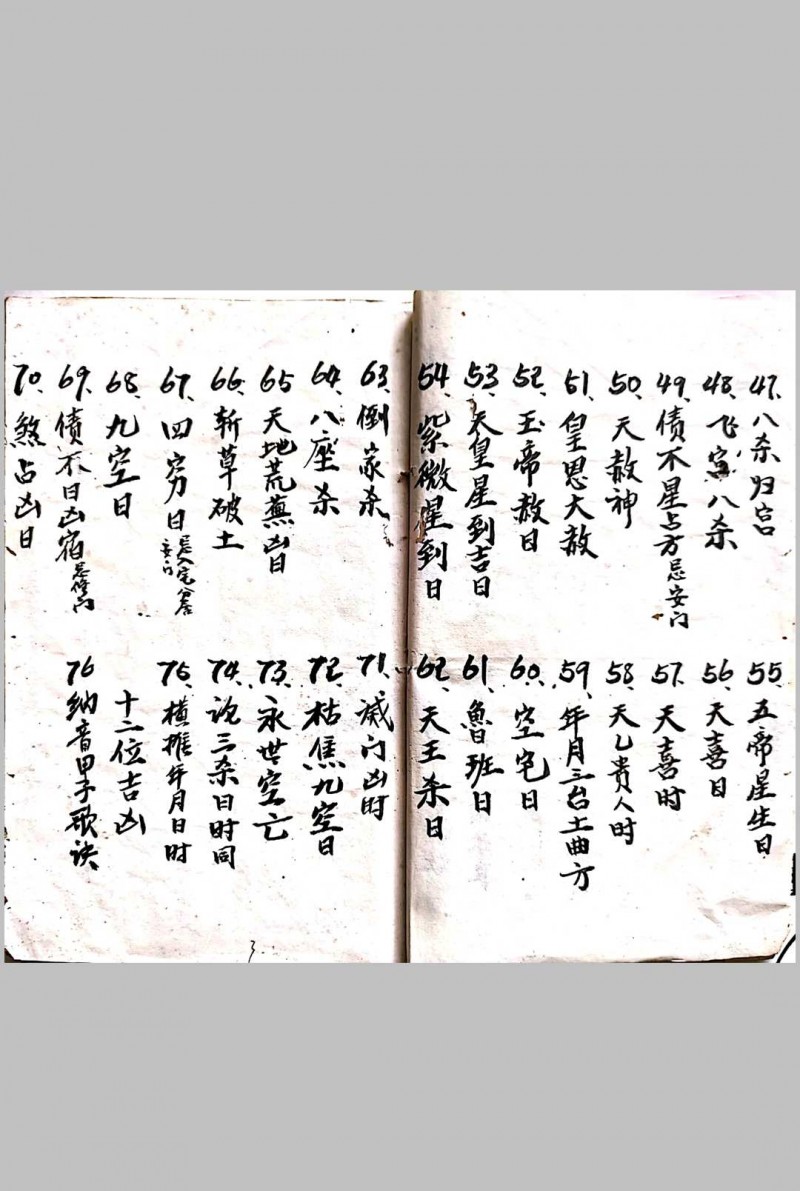 47、八杀归宫
48、飞宫八杀
49、债不星占方忌安门
50、天赦神
51、皇恩大赦
52、玉帝赦日
53、天皇星到吉日
54、紫微星到日
55、五帝星生日
56、天喜日
57、天喜时
58、天乙贵人时
59、年月三台土曲方
60、空宅日
61、魯班日
62、天王杀日
63、倒家杀
64、八座杀
65、天地荒蕪凶日
66、斩草破土
67、四穷日忌入宅分居安门
68、九空日
69、债不日凶宿忌修门
70、煞占凶日
71、灭门凶时
72、枯焦九空日
73、永世空亡
74、说三杀日时同
75、横推年月日时
十二位吉凶
76、纳音甲子歌诀
3